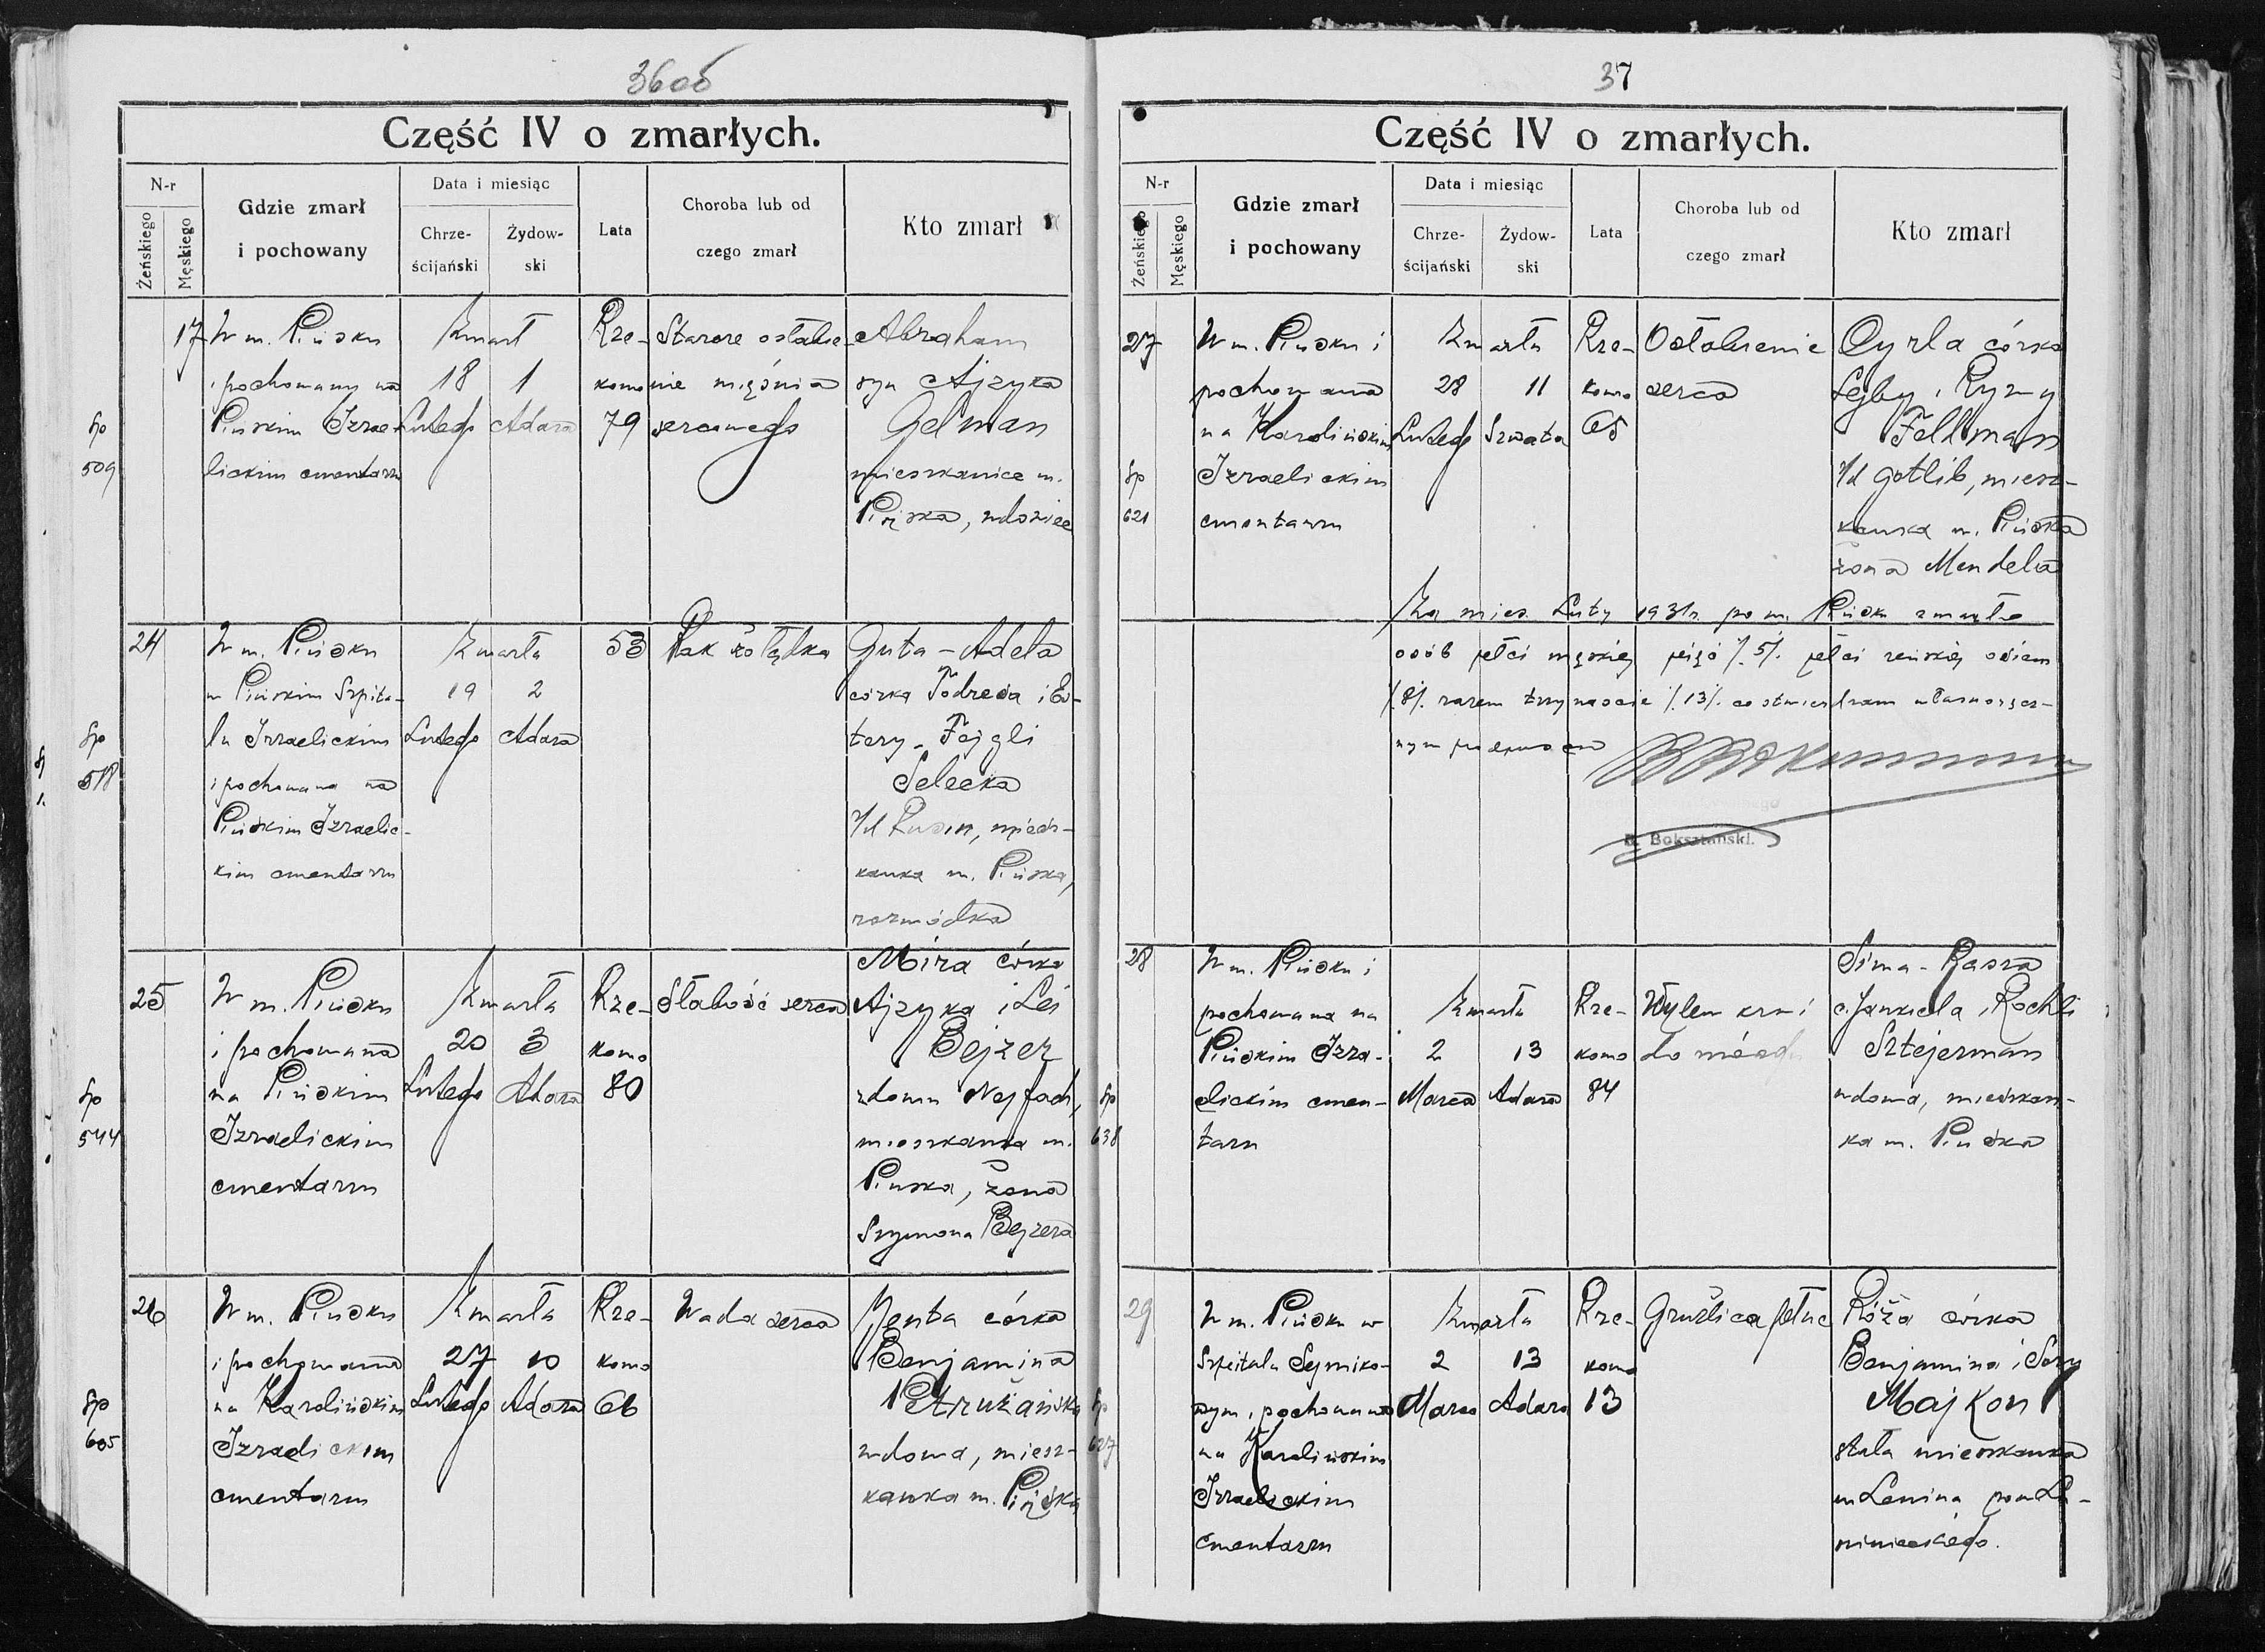 36об
Część IV o zmarłych.
N-r
Żeńskiego
Męskiego
Gdzie zmarł
i pochowany
Data i miesiąc
Chrze-
ścijański
Żydow-
ski
Lata
Choroba lub od
czego zmarł
Kto zmarł
17
W m. Pińsku
i pochowany na
Pińskim Izrae-
lickim cmentarzu
Zmarł
18 1
Lutego Adara
Rze-
komo
79
Starcze osłabie-
nie mięśnia
sercowego
Abraham
syn Ajzyka
Gelman
mieszkaniec m.
Pińska, wdowiec
Sp
509
24
W m. Pińsku
w Pińskim Szpita-
lu Izraelickim
i pochowana na
Pińskim Izraelic-
kim cmentarzu
Zmarła
19 2
Lutego Adara
53
Rak żołądka
Guta-Adela
córka Todresa i Es-
tery-Fejgli
Selecka
Vd Rusin, miesz-
kanka m. Pińska,
rozwódka
Sp
518
25
W m. Pińsku
i pochowana
na Pińskim
Izraelickim
cmentarzu
Zmarła
20 3
Lutego Adara
Rze-
komo
80
Słabość serca
Mira córka
Ajzyka i Lei
Bejzer
z domu Nejfach,
mieszkanka m.
Pińska, żona
Szymona Bejzera
Sp
544
26
W m. Pińsku
i pochowana
na Karolińskim
Izraelickim
cmentarzu
Zmarła
27 10
Lutego Adara
Rze-
komo
66
Wada serca
Jenta córka
Benjamina
Prużańska
wdowa, miesz-
kanka m. Pińska
Sp
605
37
Część IV o zmarłych.
N-r
Żeńskiego
Męskiego
Gdzie zmarł
i pochowany
Data i miesiąc
Chrze-
ścijański
Żydow-
ski
Lata
Choroba lub od
czego zmarł
Kto zmarł
27
W m. Pińsku i
pochowana
na Karolińskim
Izraelickim
cmentarzu
Zmarła
28 11
Lutego Szwata
Rze-
komo
65
Osłabienie
serca
Cyrla córka
Lejby i Rywy
Feldman
Vd Gotlib, miesz-
kanka m. Pińska
żona Mendela
Sp
621
Za mies. Luty 1931 r. po m. Pińsku zmarło
osób płci męskiej pięć /.5/. płci żeńskiej osiem
/.8/. razem trzynaście /.13/. co stwierdzam własnoręcz-
nym podpisem
B. Boksztański.
28
W m. Pińsku i
pochowana na
Pińskim Izra-
elickim cmen-
tarzu
Zmarła
2 13
Marca Adara
Rze-
komo
84
Wylew krwi
do mózgu
Sima-Basza
c. Jankiela i Rochli
Sztejerman
wdowa, mieszkan-
ka m. Pińska
Sp
638
29
W m. Pińsku w
Szpitalu Sejmiko-
wym i pochowana
na Karolińskim
Izraelickim
cmentarzu
Zmarła
2 13
Marca Adara
Rze-
komo
13
Gruźlica płuc
Róża córka
Benjamina i Sory
Majkon
stała mieszkanka
m Lenina pow Łu-
ninieckiego.
Sp
627